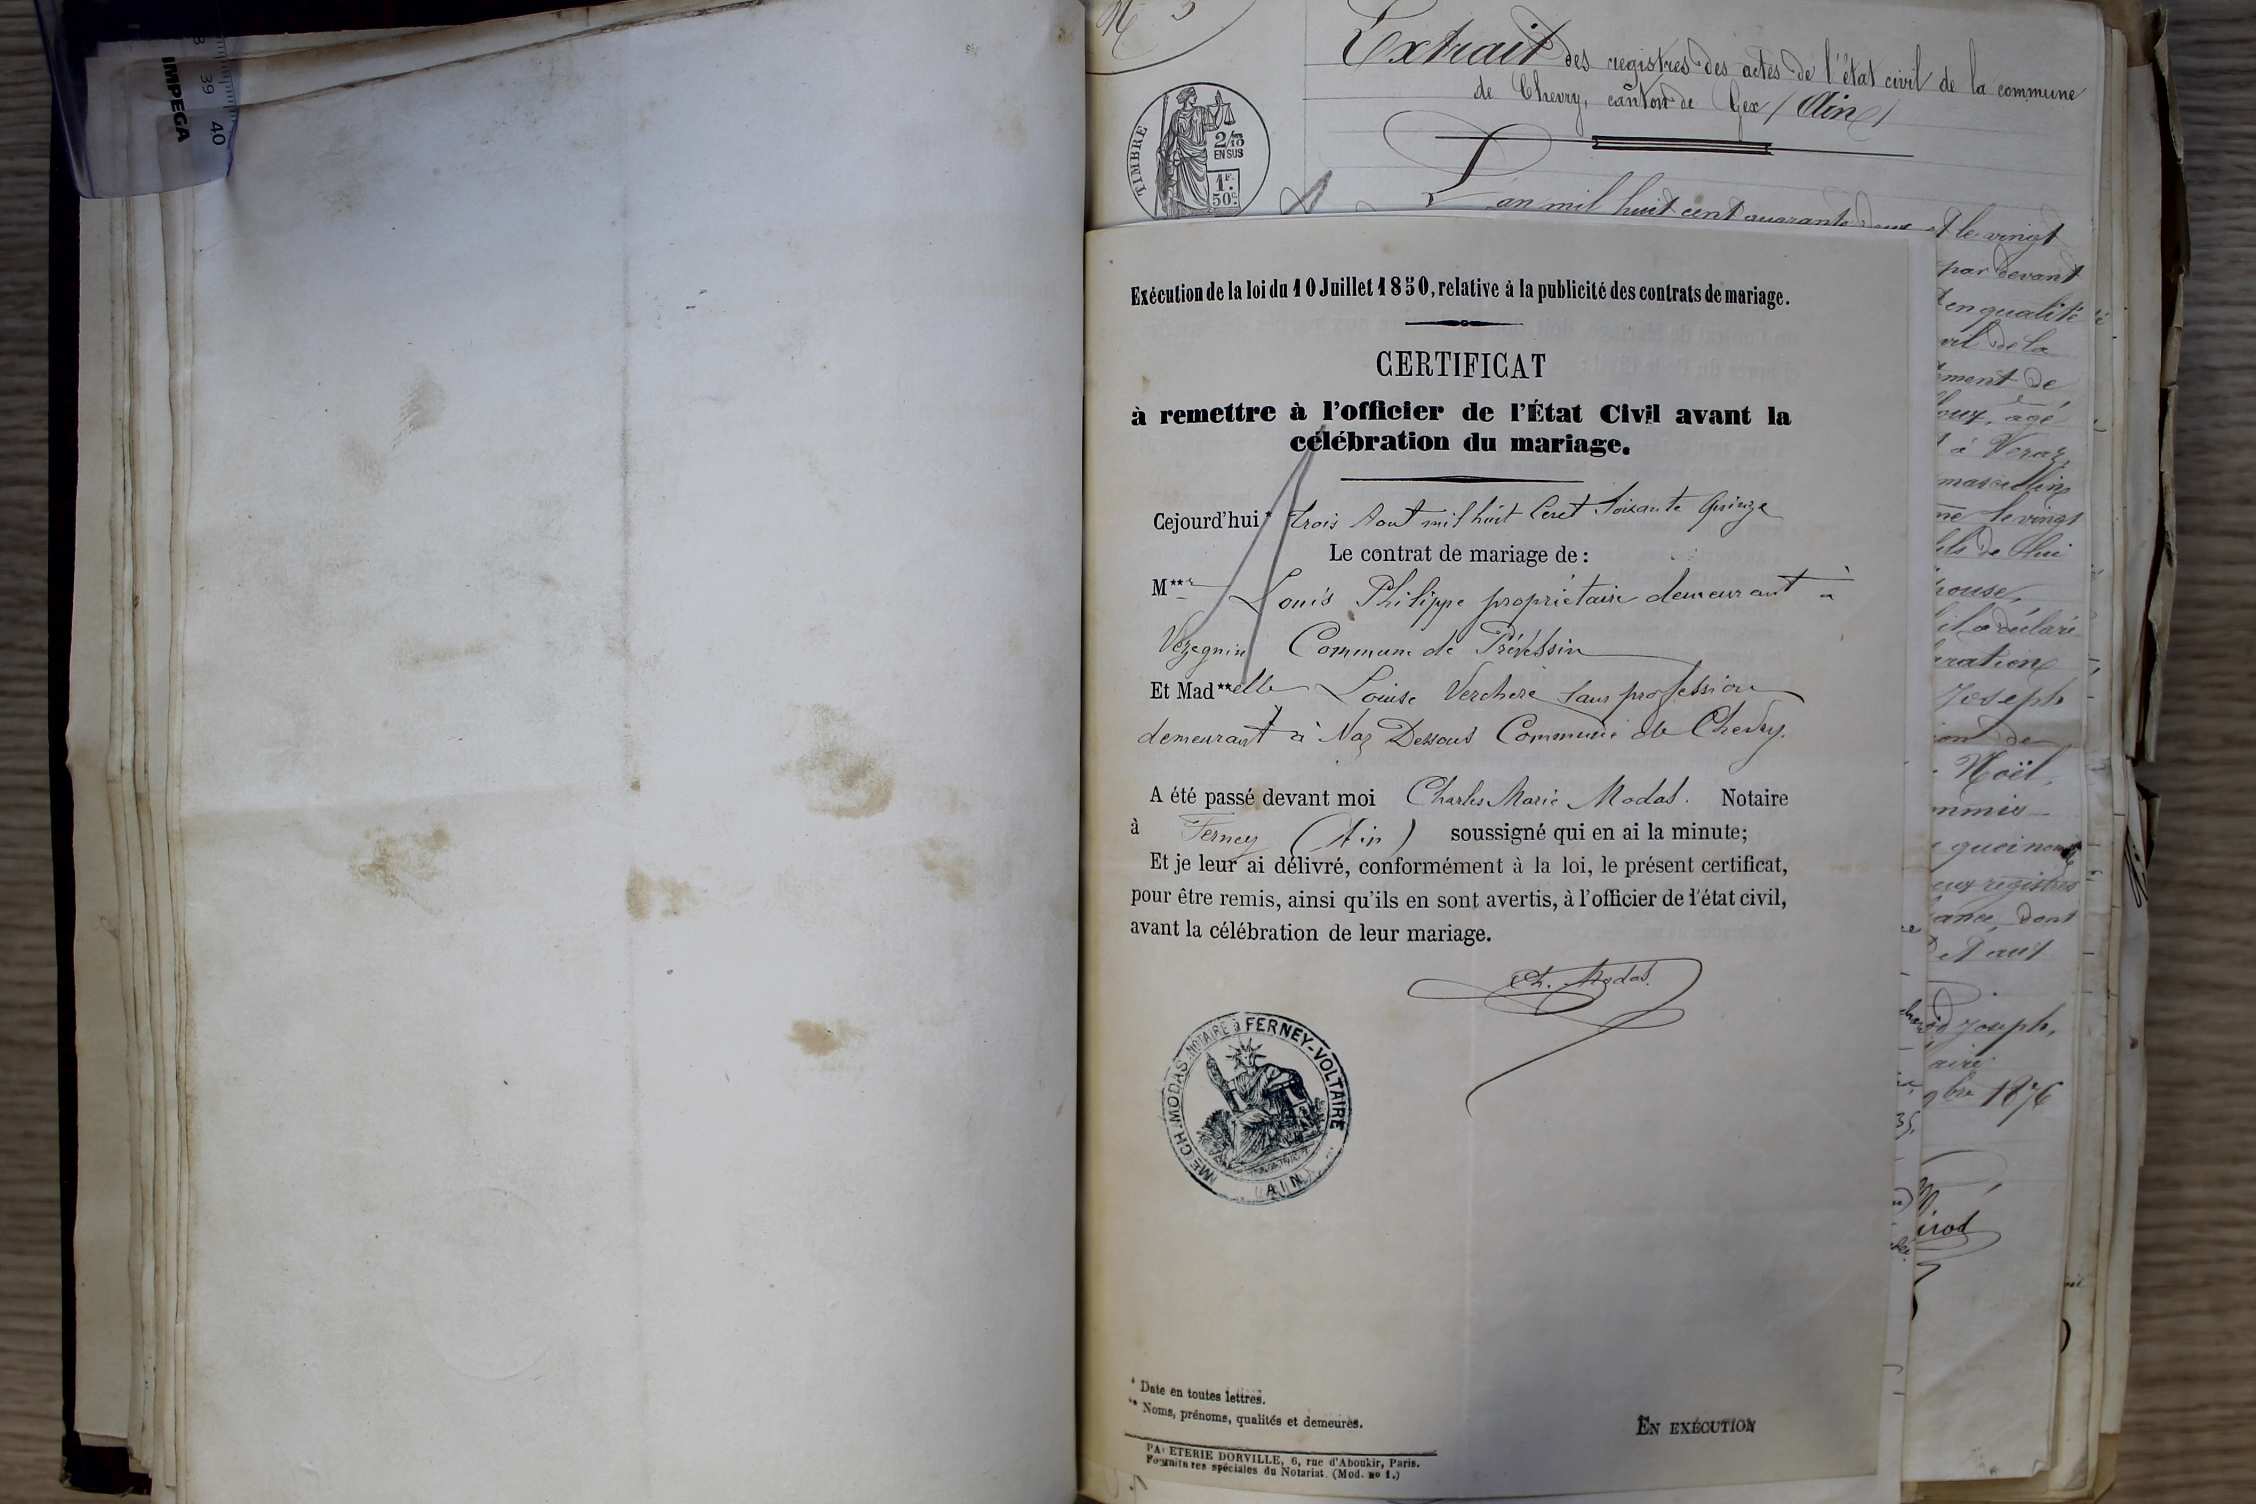 39
40
IMPEGA
N° 3
Extrait des registres des actes de l'état civil de la commune
de Chevry, canton de Gex (Ain)
TIMBRE
2/10
EN SUS
1F.
50c.
L'an mil huit cent quarante deux et le vingt
par devant
en qualité
vil de la
ment de
oux, agé
à Veraz,
masculin
né le vingt
fils de lui
pouse,
il a déclaré
aration
Joseph
ion de
Noël,
quei nom
eux registres
dont
et aux
Joseph,
aire
bre 1876
irod
Exécution de la loi du 10 Juillet 1850, relative à la publicité des contrats de mariage.
CERTIFICAT
à remettre à l'officier de l'État Civil avant la
célébration du mariage.
Cejourd'hui * trois Aout mil huit Cent Soixante Quinze
Le contrat de mariage de :
M** r Louis Philippe propriétaire demeurant à
Vezegnin Commune de Prévessin
Et Mad** elle Louise Verchère sans profession
demeurant à Naz Dessous Commune de Chevry.
A été passé devant moi Charles Marie Modas. Notaire
à Ferney (Ain) soussigné qui en ai la minute;
Et je leur ai délivré, conformément à la loi, le présent certificat,
pour être remis, ainsi qu'ils en sont avertis, à l'officier de l'état civil,
avant la célébration de leur mariage.
Ch. Modas.
ME CH. MODAS NOTAIRE à FERNEY-VOLTAIRE
(AIN)
* Date en toutes lettres.
** Noms, prénoms, qualités et demeures.
PAPETERIE DORVILLE, 6, rue d'Aboukir, Paris.
Fournitures spéciales du Notariat. (Mod. no 1.)
EN EXÉCUTION